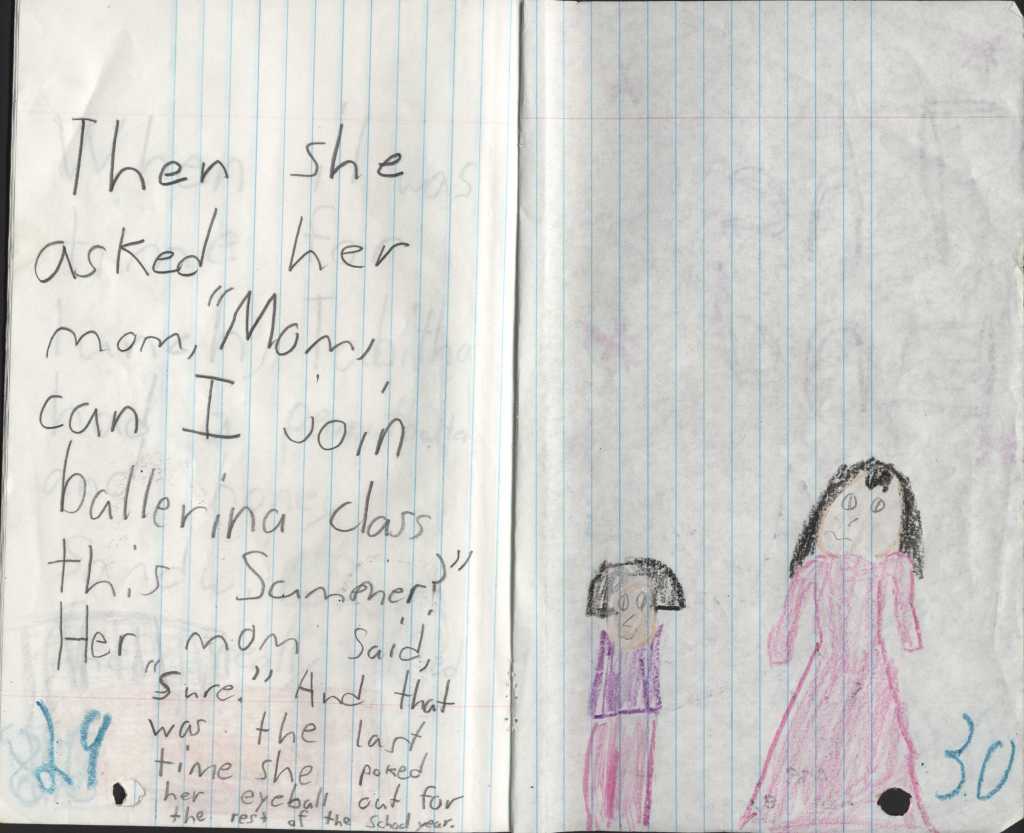 Then she
asked her
mom, "Mom,
can I join
ballerina class
this Summer?"
Her mom said,
"Sure." And that
was the last
time she poked
her eyeball out for
the rest of the school year.
29
30